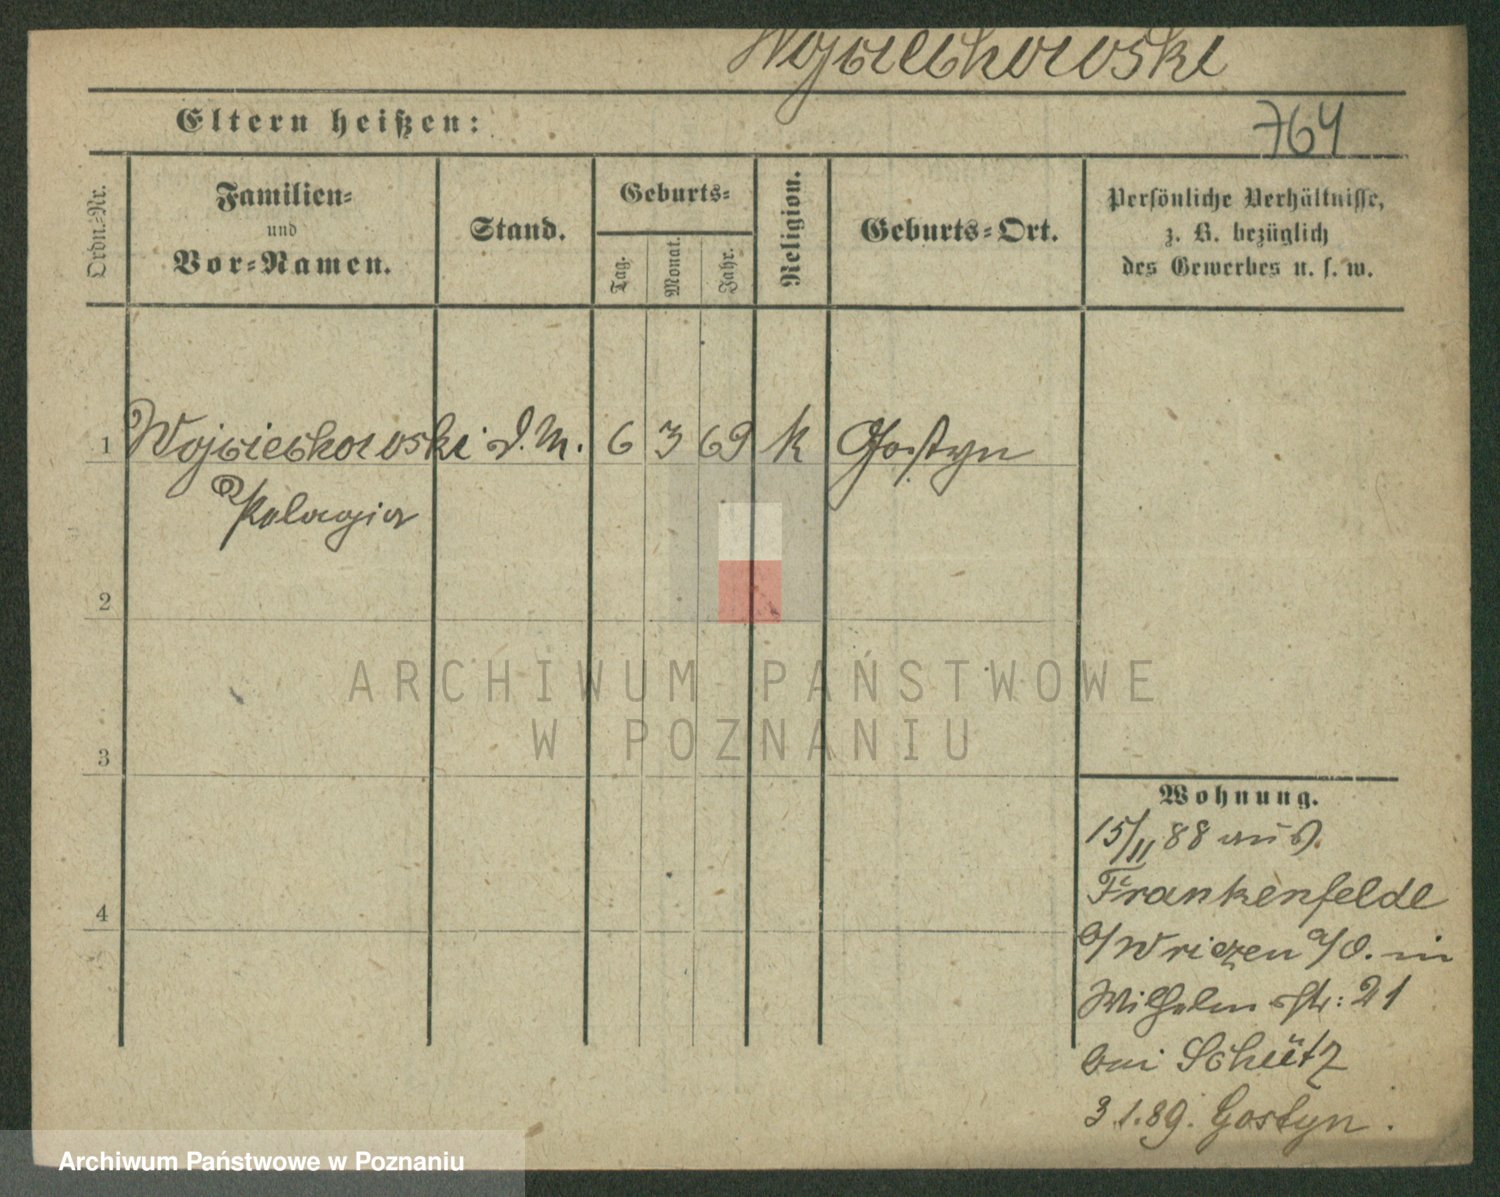 Wojciechowski
Eltern heißen:
764
Ordn.-Nr.
Familien-
und
Vor-Namen.
Stand.
Geburts-
Tag.
Monat.
Jahr.
Religion.
Geburts-Ort.
Persönliche Verhältnisse,
z. B. bezüglich
des Gewerbes u. s. w.
1 Wojciechowski D.M. 6 3 69 k Gostyn
Pelagia
2
ARCHIWUM PAŃSTWOWE
W POZNANIU
3
Wohnung.
15/11 88 aus
4
Frankenfelde
b/ Wriezen a/O. in
Wilhelm str: 21
bei Schütz
3 1.89. Gostyn.
Archiwum Państwowe w Poznaniu